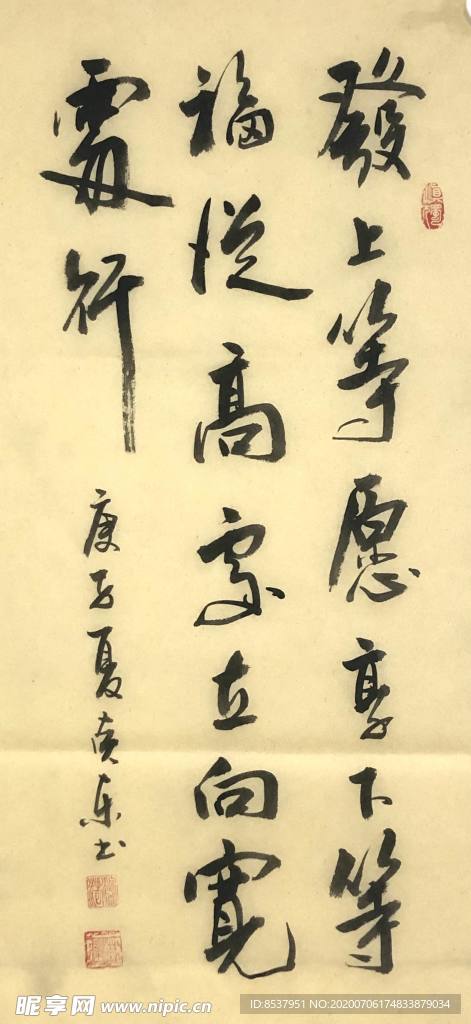 發上等愿享下等
福從高處立向寬
處行
庚子夏
东书
昵享网 www.nipic.cn
www.nipic.com
ID:8537951 NO:20200706174833879034